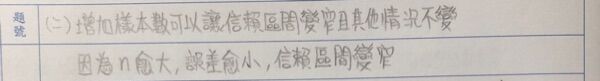 題號
(二) 增加樣本數可以讓信賴區間變窄且其他情況不變
因為n愈大, 誤差愈小, 信賴區間變窄